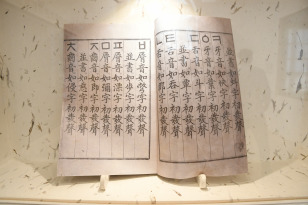 ㅋ牙音如快字初發聲
ㆁ牙音如業字初發聲
ㄷ舌音如斗字初發聲
並書如覃字初發聲
ㅌ舌音如呑字初發聲
ㄴ舌音如那字初發聲
ㅂ脣音如彆字初發聲
並書如步字初發聲
ㅍ脣音如漂字初發聲
ㅁ脣音如彌字初發聲
ㅈ齒音如即字初發聲
並書如慈字初發聲
ㅊ齒音如侵字初發聲